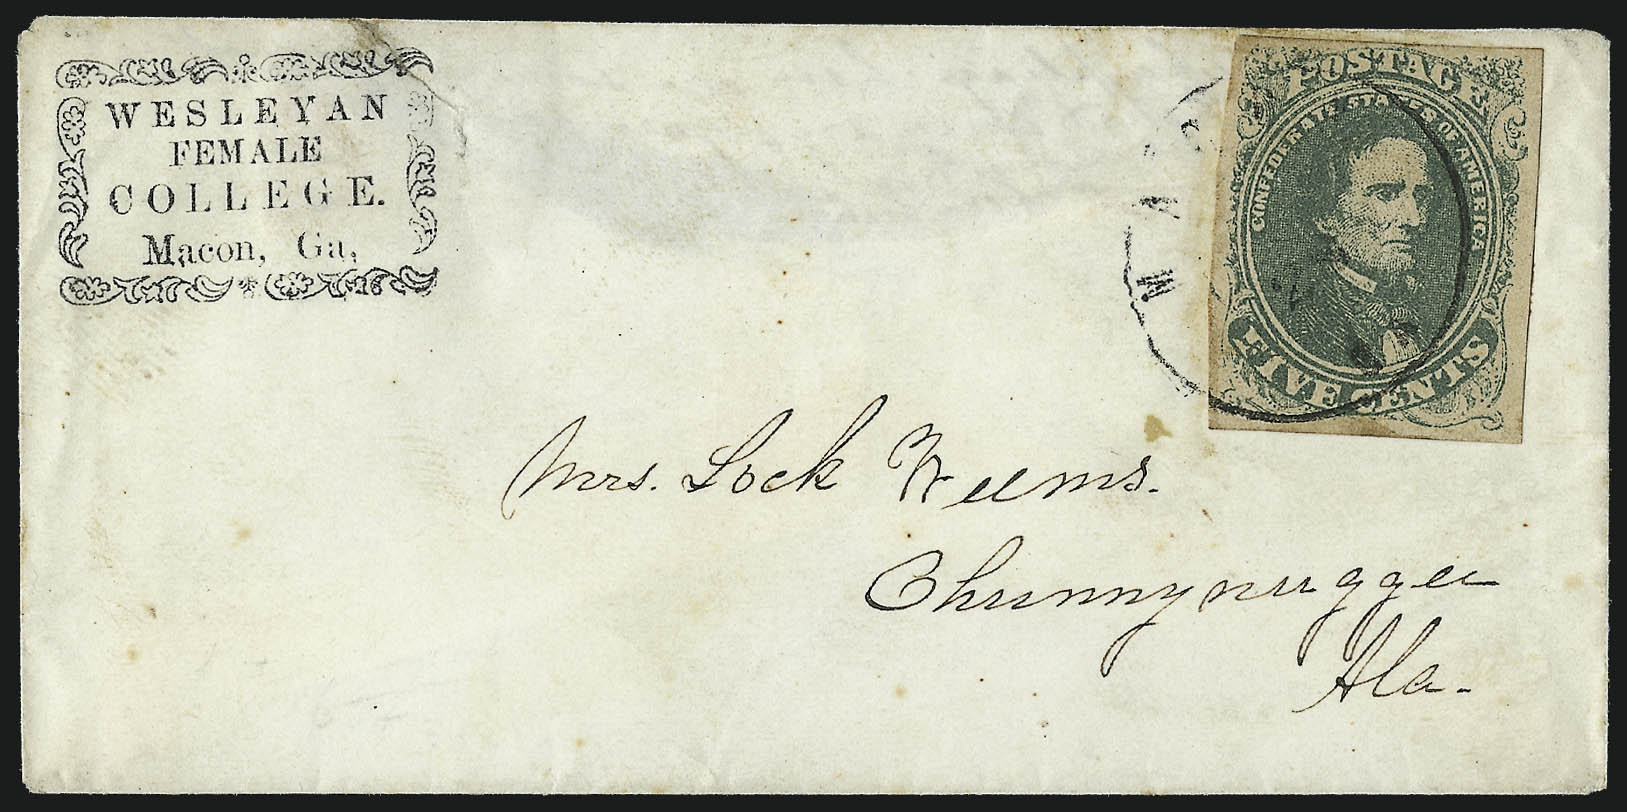 WESLEYAN
FEMALE
COLLEGE.
Macon, Ga,
POSTAGE
CONFEDERATE STATES OF AMERICA
FIVE CENTS
Mrs. Lock Weems.
Chunnynuggee
Ala.